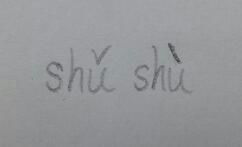 shǔ shù